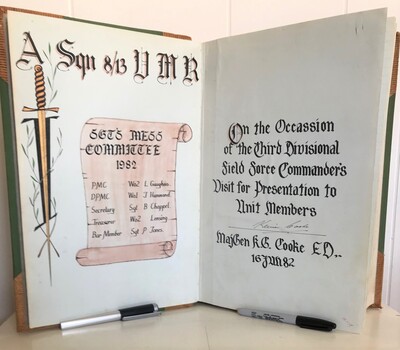 A Sqn 8/13 VMR
SGT'S MESS
COMMITTEE
1982
PMC Wo2 L Gaughan
DPMC Wo2 J Hammond
Secretary Sgt B Chappel
Treasurer Wo2 Lansing
Bar Member Sgt P Jones
On the Occassion
of the Third Divisional
Field Force Commander's
Visit for Presentation to
Unit Members
MajGen K.G. Cooke ED..
16 JUN 82